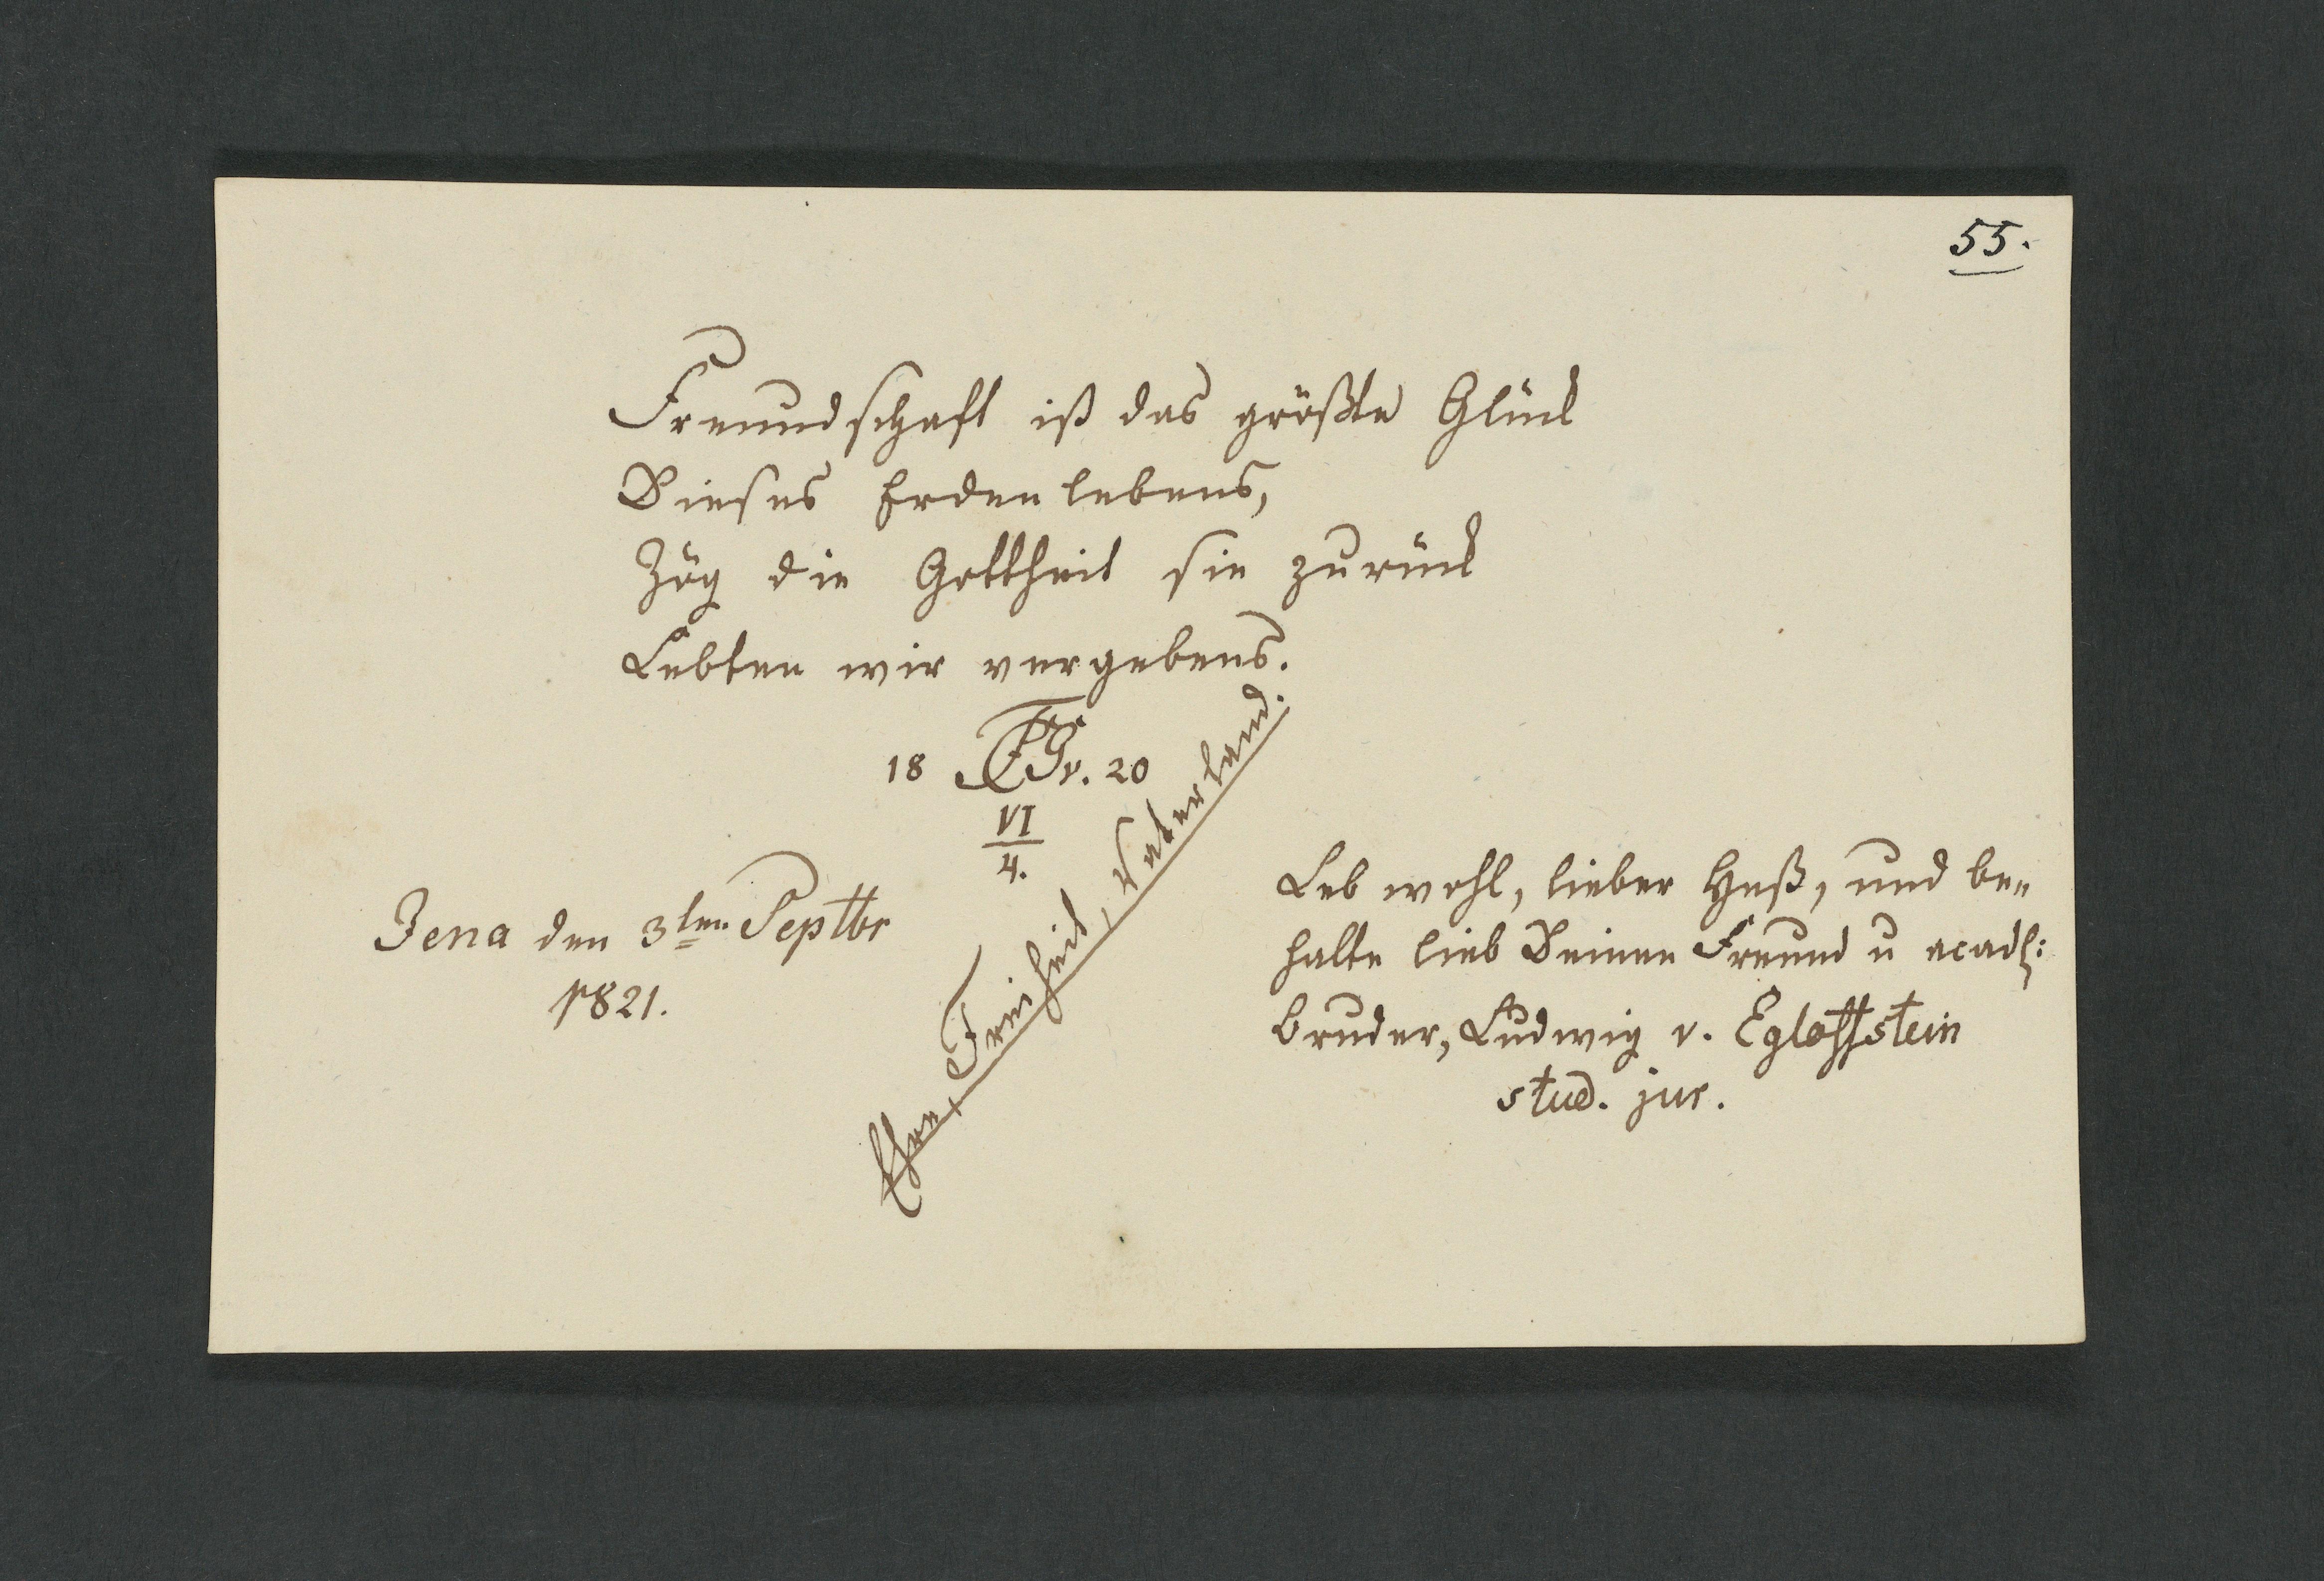 55.
Freundschaft ist das größte Glück
Dieses Erdenlebens,
Zög die Gottheit sie zurück
Lebten wir vergebens.
18 20
VI
4.
Ehre, Freiheit, Vaterland.
Jena den 3ten Septbr
1821.
Leb wohl, lieber Heß, und be„
halte lieb Deinen Freund u acad:
Bruder, Ludwig v. Egloffstein
stud. jur.